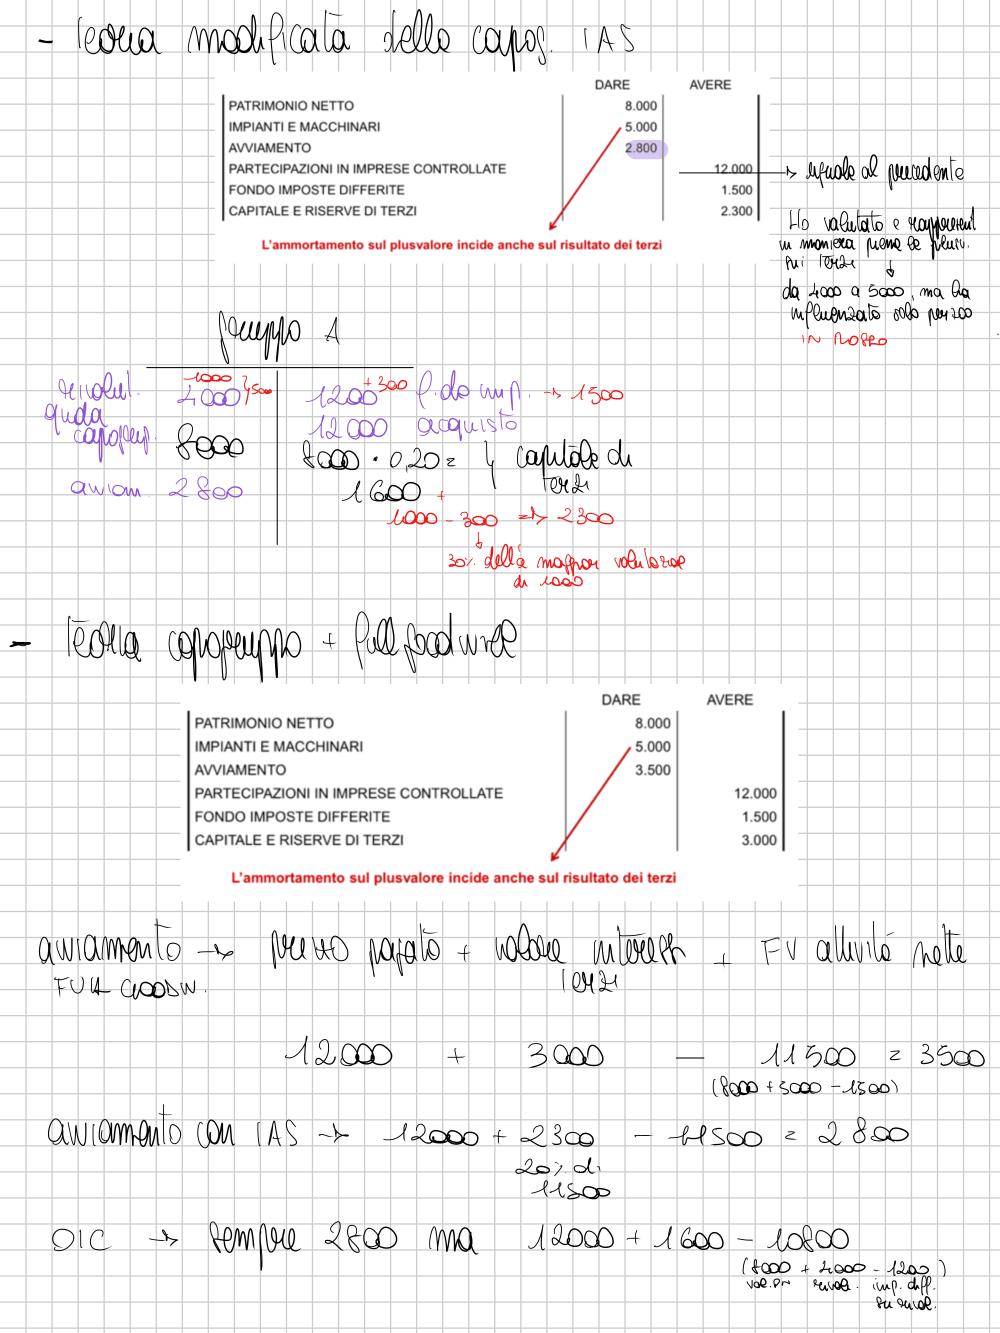 - Teoria modificata della capog. IAS
DARE AVERE
PATRIMONIO NETTO 8.000
IMPIANTI E MACCHINARI 5.000
AVVIAMENTO 2.800
PARTECIPAZIONI IN IMPRESE CONTROLLATE 12.000 → uguale al precedente
FONDO IMPOSTE DIFFERITE 1.500
CAPITALE E RISERVE DI TERZI 2.300
L'ammortamento sul plusvalore incide anche sul risultato dei terzi
Ho valutato e rappresent
in maniera piena le plusv.
sui terzi
↓
da 4000 a 5000, ma ha
influenzato solo per 200
IN ROSSO
gruppo A
rivalut. quota capogrup. 4000 1000 } 5000
1200 +300 f.do imp. → 1500
12000 acquisto
8000
8000 · 0,20 = ↳ capitale di terzi
avviam. 2800
1600 +
1000 - 300 => 2300
↓
30% della maggior valutazione
di 1000
- Teoria capogruppo + full goodwill
DARE AVERE
PATRIMONIO NETTO 8.000
IMPIANTI E MACCHINARI 5.000
AVVIAMENTO 3.500
PARTECIPAZIONI IN IMPRESE CONTROLLATE 12.000
FONDO IMPOSTE DIFFERITE 1.500
CAPITALE E RISERVE DI TERZI 3.000
L'ammortamento sul plusvalore incide anche sul risultato dei terzi
avviamento → prezzo pagato + valore interessi terzi + FV attività nette
FULL GOODW.
12000 + 3000 - 11500 = 3500
(8000 + 5000 - 1500)
avviamento con IAS → 12000 + 2300 - 11500 = 2800
20% di
11500
OIC → sempre 2800 ma 12000 + 1600 - 10800
(8000 + 4000 - 1200)
val. PN rival. imp. diff.
su rival.